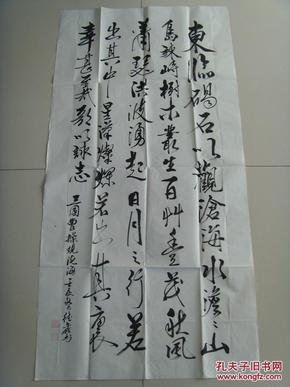 東臨碣石以觀滄海水澹〻山
島竦峙樹木叢生百艸豐茂秋風
蕭瑟洪波湧起日月之行若
出其中星漢燦爛若出其裏
幸甚至哉歌以詠志
三國曹操觀滄海 壬辰
孔夫子旧书网